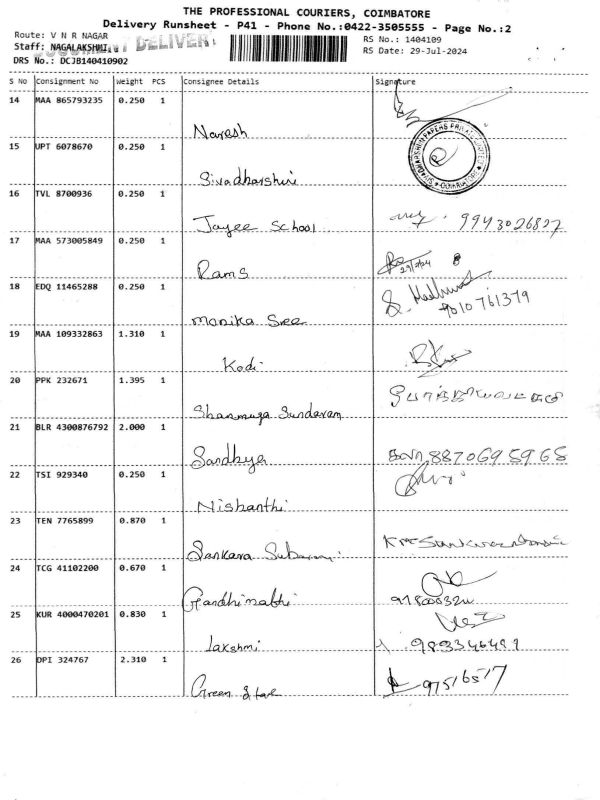 THE PROFESSIONAL COURIERS, COIMBATORE
Delivery Runsheet - P41 - Phone No.:0422-3505555 - Page No.:2
Route: V N R NAGAR
RS No.: 1404109
Staff: NAGALAKSHMI
DELIVERY
RS Date: 29-Jul-2024
DRS No.: DCJB140410902
S No Consignment No Weight PCS Consignee Details Signature
14 MAA 865793235 0.250 1
Naresh
15 UPT 6078670 0.250 1
Sivadharshini
SHIVADHARSHINI PAPERS PRIVATE LIMITED
COIMBATORE
16 TVL 8700936 0.250 1
Jayee School 9943026827
17 MAA 573005849 0.250 1
Rams 29/7/24
18 EDQ 11465288 0.250 1
Monika Sree 9010761379
19 MAA 109332863 1.310 1
Kodi
20 PPK 232671 1.395 1
Shanmuga Sundaram
21 BLR 4300876792 2.000 1
Sandhya 8870695968
22 TSI 929340 0.250 1
Nishanthi
23 TEN 7765899 0.870 1
Sankara Subarmi
24 TCG 41102200 0.670 1
Gandhimathi
25 KUR 4000470201 0.830 1
Lakshmi
26 DPI 324767 2.310 1
Green